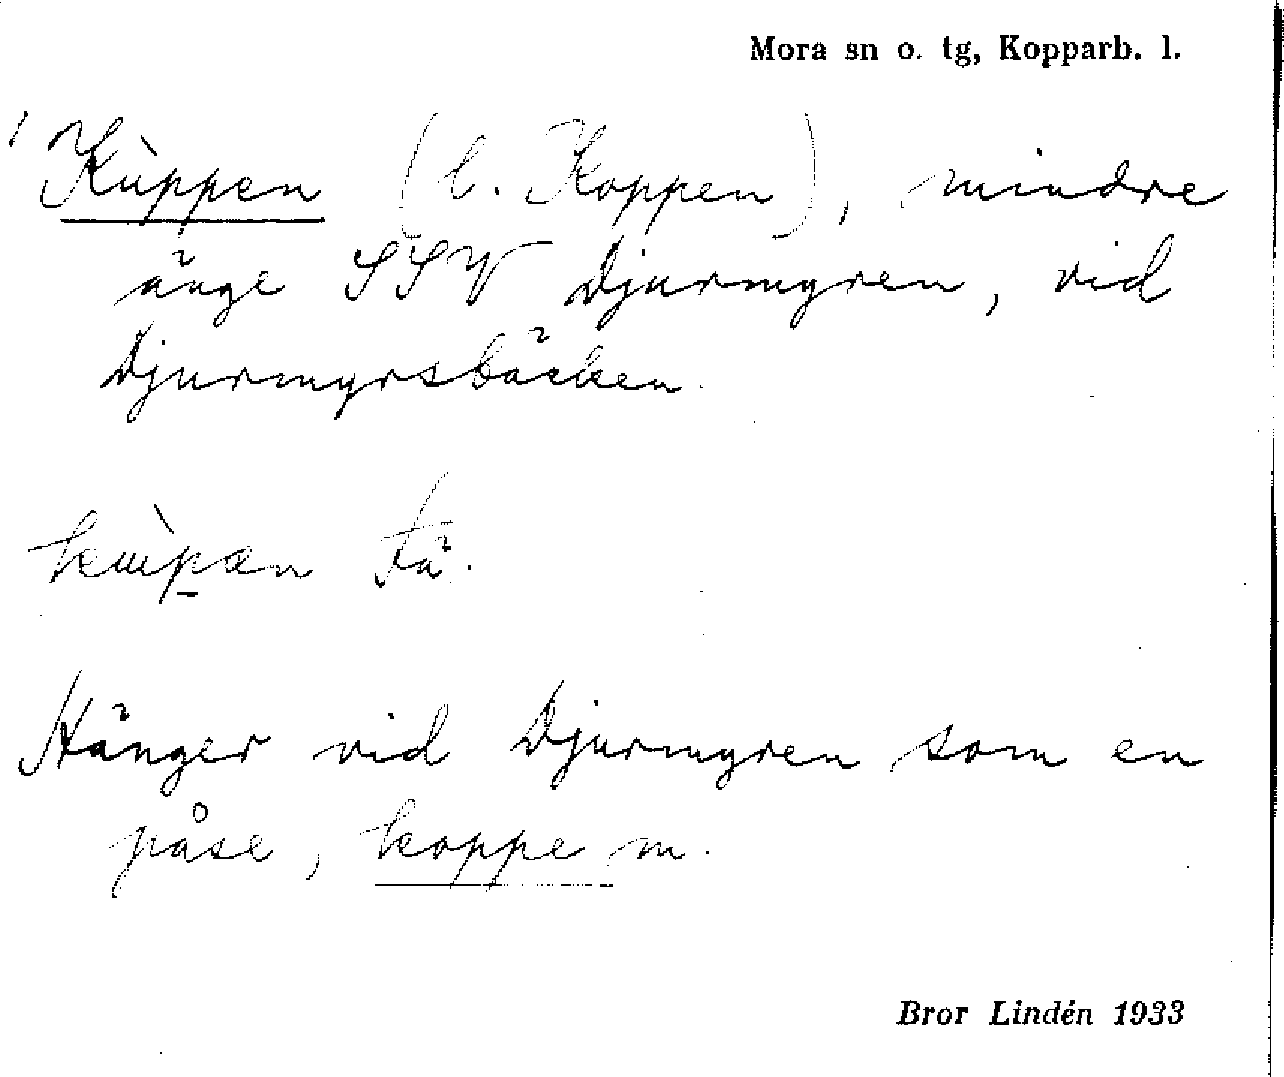 Mora sn o. tg, Kopparb. l.
Kùppen (l. Koppen), mindre
änge SSV Djurmyren, vid
Djurmyrsbäcken.
Hänger vid Djurmyren som en
påse, koppe m.
Bror Lindén 1933